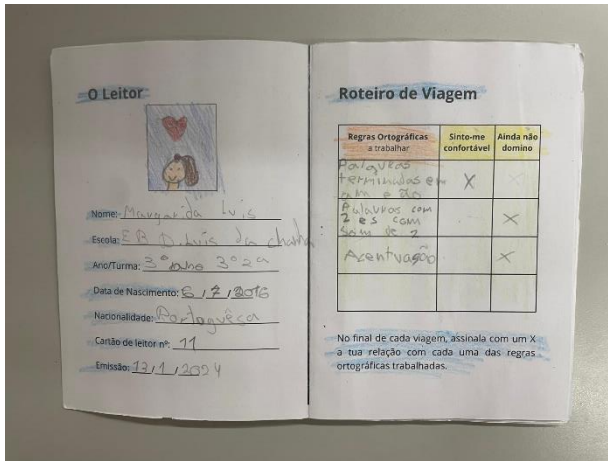 O Leitor
Nome: Margarida Luis
Escola: EB D. Luis da
Ano/Turma: 3º ano 3º 2ª
Data de Nascimento: 6 / 7 / 2016
Nacionalidade: Portoguêsa
Cartão de leitor nº: 11
Emissão: 17 / 1 / 2024
Roteiro de Viagem
Regras Ortográficas
a trabalhar
Sinto-me
confortável
Ainda não
domino
Palavras
terminadas em
am e ão
X
Palavras com
z e s com
som de z
X
Acentuação
X
No final de cada viagem, assinala com um X
a tua relação com cada uma das regras
ortográficas trabalhadas.